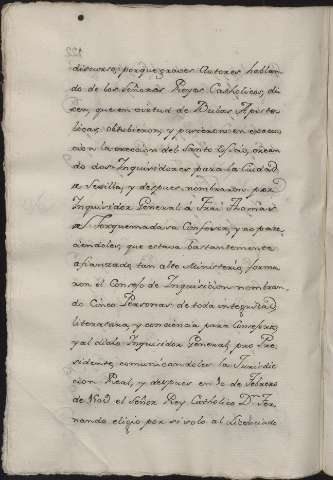 discurso, porque graves Autores hablan-
do de los Señores Reyes Catholicos, di-
sen, que en virtud de Bulas Apisto-
licas, obtubieron, y pusieron en execu-
cion la ereccion del Santo Oficio, crean
do dos Inquisidores para la Ciudad
de Sevilla, y despues nombraron por
Inquisidor General à Frai Thomas
de Torquemada su Confesor, y no pare-
ciendoles, que estava bastantemente
afianzado tan alto Ministerio, forma-
ron el Consejo de Inquisicion nombran-
do Cinco Personas de toda integridad
literatura, y conciencia para Consejeros,
y al dicho Inquisidor General, por Pre-
sidente, comunicandoles la Jurisdic-
cion Real, y despues en 10 de Febrero
de el Señor Rey Catholico Dn. Fer-
nando eligio por si solo al Licenciado